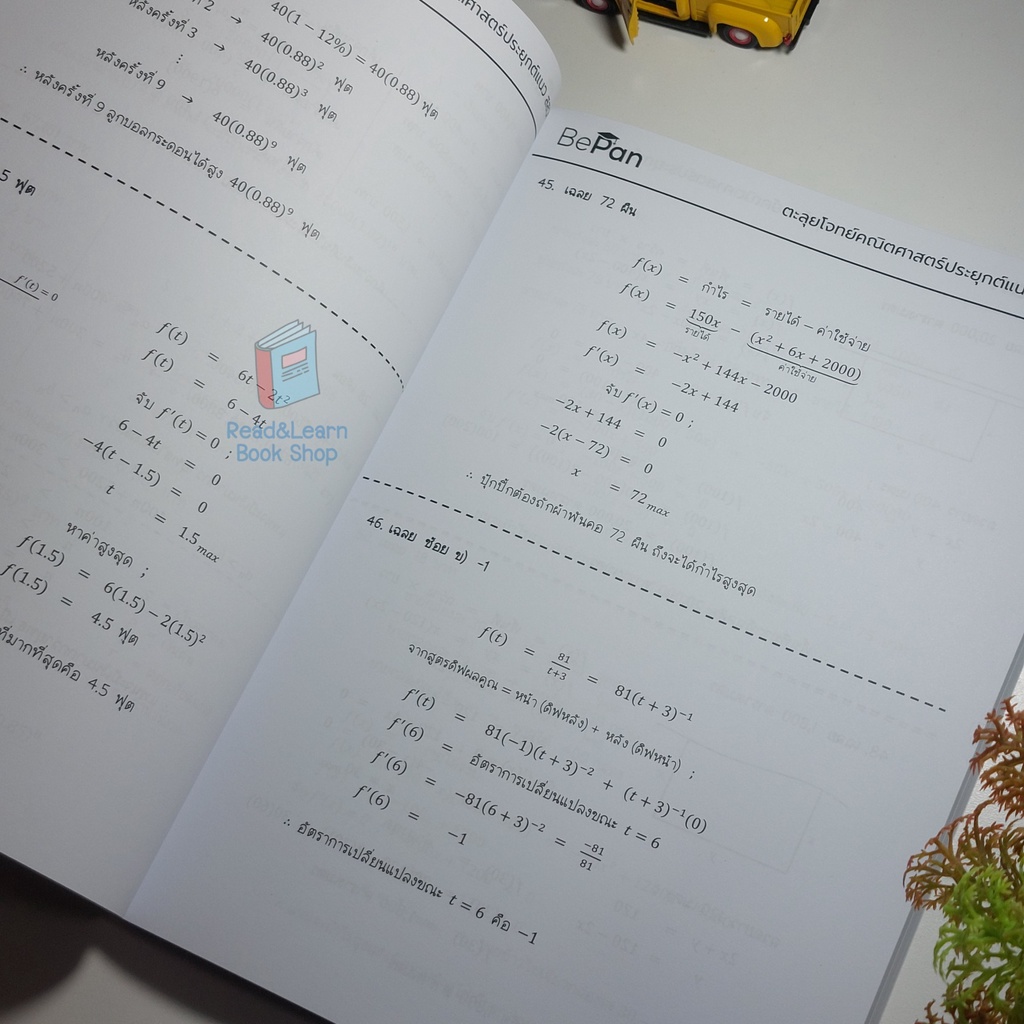 40(1 − 12%) = 40(0.88) ฟุต
หลังครั้งที่ 3 → 40(0.88)² ฟุต
⋮ 40(0.88)³ ฟุต
หลังครั้งที่ 9 → 40(0.88)⁹ ฟุต
∴ หลังครั้งที่ 9 ลูกบอลกระดอนได้สูง 40(0.88)⁹ ฟุต
5 ฟุต
f'(t) = 0
f(t) = 6t − 2t²
f(t) = 6 − 4t
จับ f'(t) = 0 ;
6 − 4t = 0
−4(t − 1.5) = 0
t = 1.5max
หาค่าสูงสุด ;
f(1.5) = 6(1.5) − 2(1.5)²
f(1.5) = 4.5 ฟุต
ที่มากที่สุดคือ 4.5 ฟุต
Read&Learn
Book Shop
BePan
ตะลุยโจทย์คณิตศาสตร์ประยุกต์แนว
45. เฉลย 72 ผืน
f(x) = กำไร = รายได้ − ค่าใช้จ่าย
f(x) = 150x − (x² + 6x + 2000)
รายได้ ค่าใช้จ่าย
f(x) = −x² + 144x − 2000
f'(x) = −2x + 144
จับ f'(x) = 0 ;
−2x + 144 = 0
−2(x − 72) = 0
x = 72max
∴ ปุ๊กปิ๊กต้องถักผ้าพันคอ 72 ผืน ถึงจะได้กำไรสูงสุด
46. เฉลย ช้อย ข) -1
f(t) = 81/(t+3) = 81(t + 3)⁻¹
จากสูตรดิฟผลคูณ = หน้า (ดิฟหลัง) + หลัง (ดิฟหน้า) ;
f'(t) = 81(−1)(t + 3)⁻² + (t + 3)⁻¹(0)
f'(6) = อัตราการเปลี่ยนแปลงขณะ t = 6
f'(6) = −81(6 + 3)⁻² = −81/81
f'(6) = −1
∴ อัตราการเปลี่ยนแปลงขณะ t = 6 คือ −1